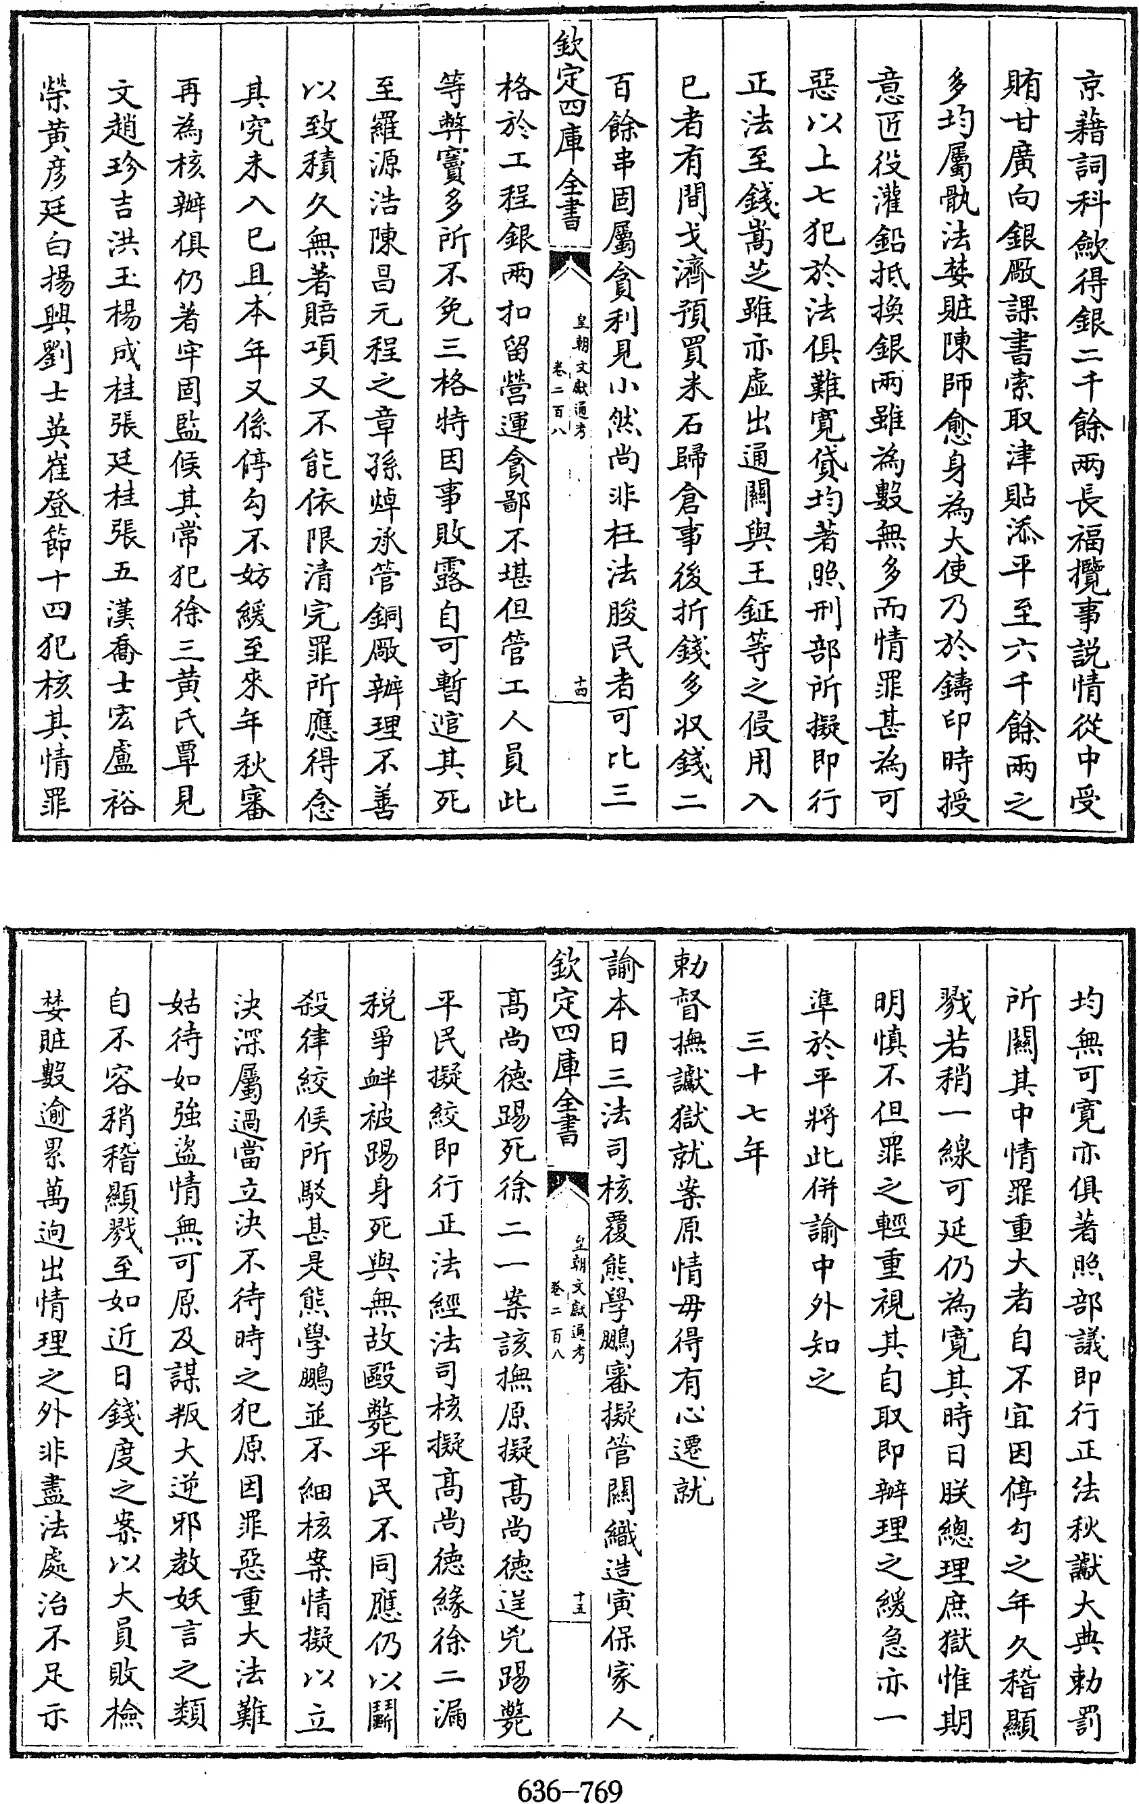 京藉詞科歛得銀二千餘兩長福攬事説情從中受
賄甘廣向銀厰課書索取津貼添平至六千餘兩之
多均屬骩法婪賍陳師愈身為大使乃於鑄印時授
意匠役灌鉛抵換銀兩雖為數無多而情罪甚為可
惡以上七犯於法俱難寛貸均著照刑部所擬即行
正法至錢嵩芝雖亦虚出通闗與王鉦等之侵用入
已者有間戈濟預買米石歸倉事後折錢多收錢二
百餘串固屬貪利見小然尚非枉法朘民者可比三
欽定四庫全書
皇朝文獻通考
卷二百八
十四
格於工程銀兩扣留營運貪鄙不堪但管工人員此
等弊竇多所不免三格特因事敗露自可暫逭其死
至羅源浩陳昌元程之章孫焯承管銅厰辦理不善
以致積久無著賠項又不能依限清完罪所應得念
其究未入已且本年又係停勾不妨緩至來年秋審
再為核辦俱仍著牢固監候其常犯徐三黄氏覃見
文趙珍吉洪玉楊成桂張廷桂張五漢喬士宏盧裕
榮黄彦廷白揚興劉士英崔登節十四犯核其情罪
均無可寛亦俱著照部議即行正法秋讞大典勅罰
所闗其中情罪重大者自不宜因停勾之年久稽顯
戮若稍一線可延仍為寛其時日朕總理庶獄惟期
明慎不但罪之輕重視其自取即辦理之緩急亦一
準於平將此併諭中外知之
三十七年
勅督撫讞獄就案原情毋得有心遷就
諭本日三法司核覆熊學鵬審擬管闗織造寅保家人
欽定四庫全書
皇朝文獻通考
卷二百八
十五
髙尚德踢死徐二一案該撫原擬髙尚德逞兇踢斃
平民擬絞即行正法經法司核擬髙尚德緣徐二漏
税爭衅被踢身死與無故毆斃平民不同應仍以鬭
殺律絞候所駁甚是熊學鵬並不細核案情擬以立
決深屬過當立決不待時之犯原因罪惡重大法難
姑待如強盗情無可原及謀叛大逆邪教妖言之類
自不容稍稽顯戮至如近日錢度之案以大員敗檢
婪賍數逾累萬逈出情理之外非盡法處治不足示
636-769